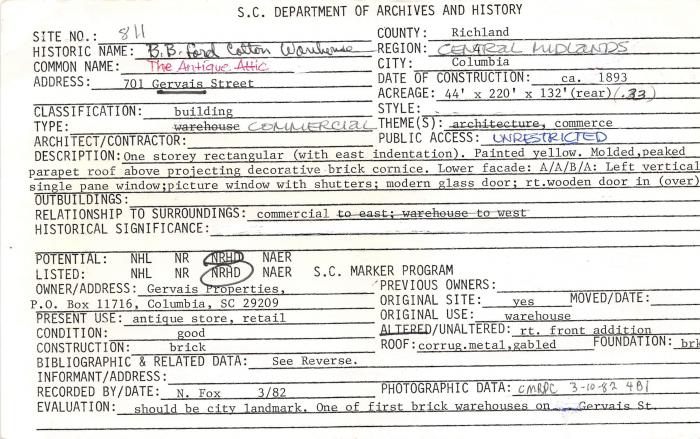 S.C. DEPARTMENT OF ARCHIVES AND HISTORY
SITE NO.: 811 COUNTY: Richland
HISTORIC NAME: B.B. Ford Cotton Warehouse REGION: CENTRAL MIDLANDS
COMMON NAME: The Antique Attic CITY: Columbia
ADDRESS: 701 Gervais Street DATE OF CONSTRUCTION: ca. 1893
ACREAGE: 44' x 220' x 132'(rear)(.33)
CLASSIFICATION: building STYLE:
TYPE: warehouse COMMERCIAL THEME(S): architecture, commerce
ARCHITECT/CONTRACTOR: PUBLIC ACCESS: UNRESTRICTED
DESCRIPTION: One storey rectangular (with east indentation). Painted yellow. Molded,peaked
parapet roof above projecting decorative brick cornice. Lower facade: A/A/B/A: Left vertical
single pane window;picture window with shutters; modern glass door; rt.wooden door in (over)
OUTBUILDINGS:
RELATIONSHIP TO SURROUNDINGS: commercial to east; warehouse to west
HISTORICAL SIGNIFICANCE:
POTENTIAL: NHL NR NRHD NAER
LISTED: NHL NR NRHD NAER S.C. MARKER PROGRAM
OWNER/ADDRESS: Gervais Properties, PREVIOUS OWNERS:
P.O. Box 11716, Columbia, SC 29209 ORIGINAL SITE: yes MOVED/DATE:
PRESENT USE: antique store, retail ORIGINAL USE: warehouse
CONDITION: good ALTERED/UNALTERED: rt. front addition
CONSTRUCTION: brick ROOF: corrug.metal,gabled FOUNDATION: brk
BIBLIOGRAPHIC & RELATED DATA: See Reverse.
INFORMANT/ADDRESS:
RECORDED BY/DATE: N. Fox 3/82 PHOTOGRAPHIC DATA: CMRPC 3-10-82 4B1
EVALUATION: should be city landmark. One of first brick warehouses on Gervais St.